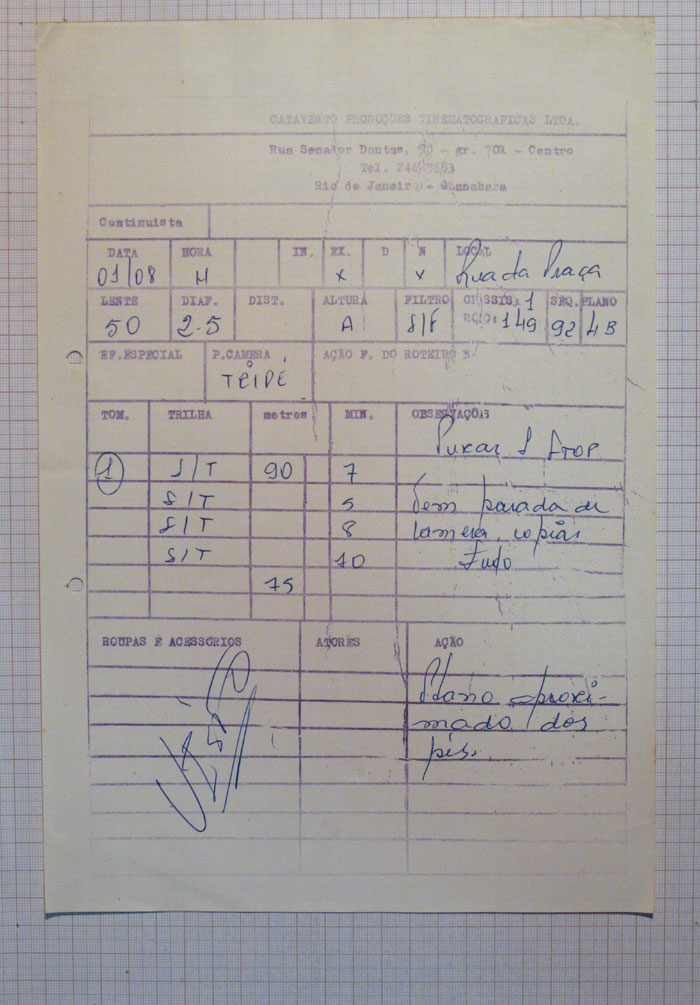 CATAVENTO PRODUÇÕES CINEMATOGRAFICAS LTDA.
Rua Senador Dantas, - gr. 701 - Centro
Tel.
Rio de Janeiro - Guanabara
Continuista
DATA HORA IN. EX. D N LOCAL
01/08 N x x Rua da Praça
LENTE DIAF. DIST. ALTURA FILTRO CHASSIS: 1 SEQ. PLANO
50 2.5 A S/F ROLO: 149 92 4B
EF. ESPECIAL P. CAMERA AÇÃO F. DO ROTEIRO N-
TRIPÉ
TOM. TRILHA metros MIN. OBSERVAÇÕES
Puxar 1 STOP
1 S/T 90 7
S/T 5 Sem parada de
S/T 8 camera, copiar
S/T 10 Tudo
75
ROUPAS E ACESSÓRIOS ATORES AÇÃO
Plano aproxi-
mado dos
pés.